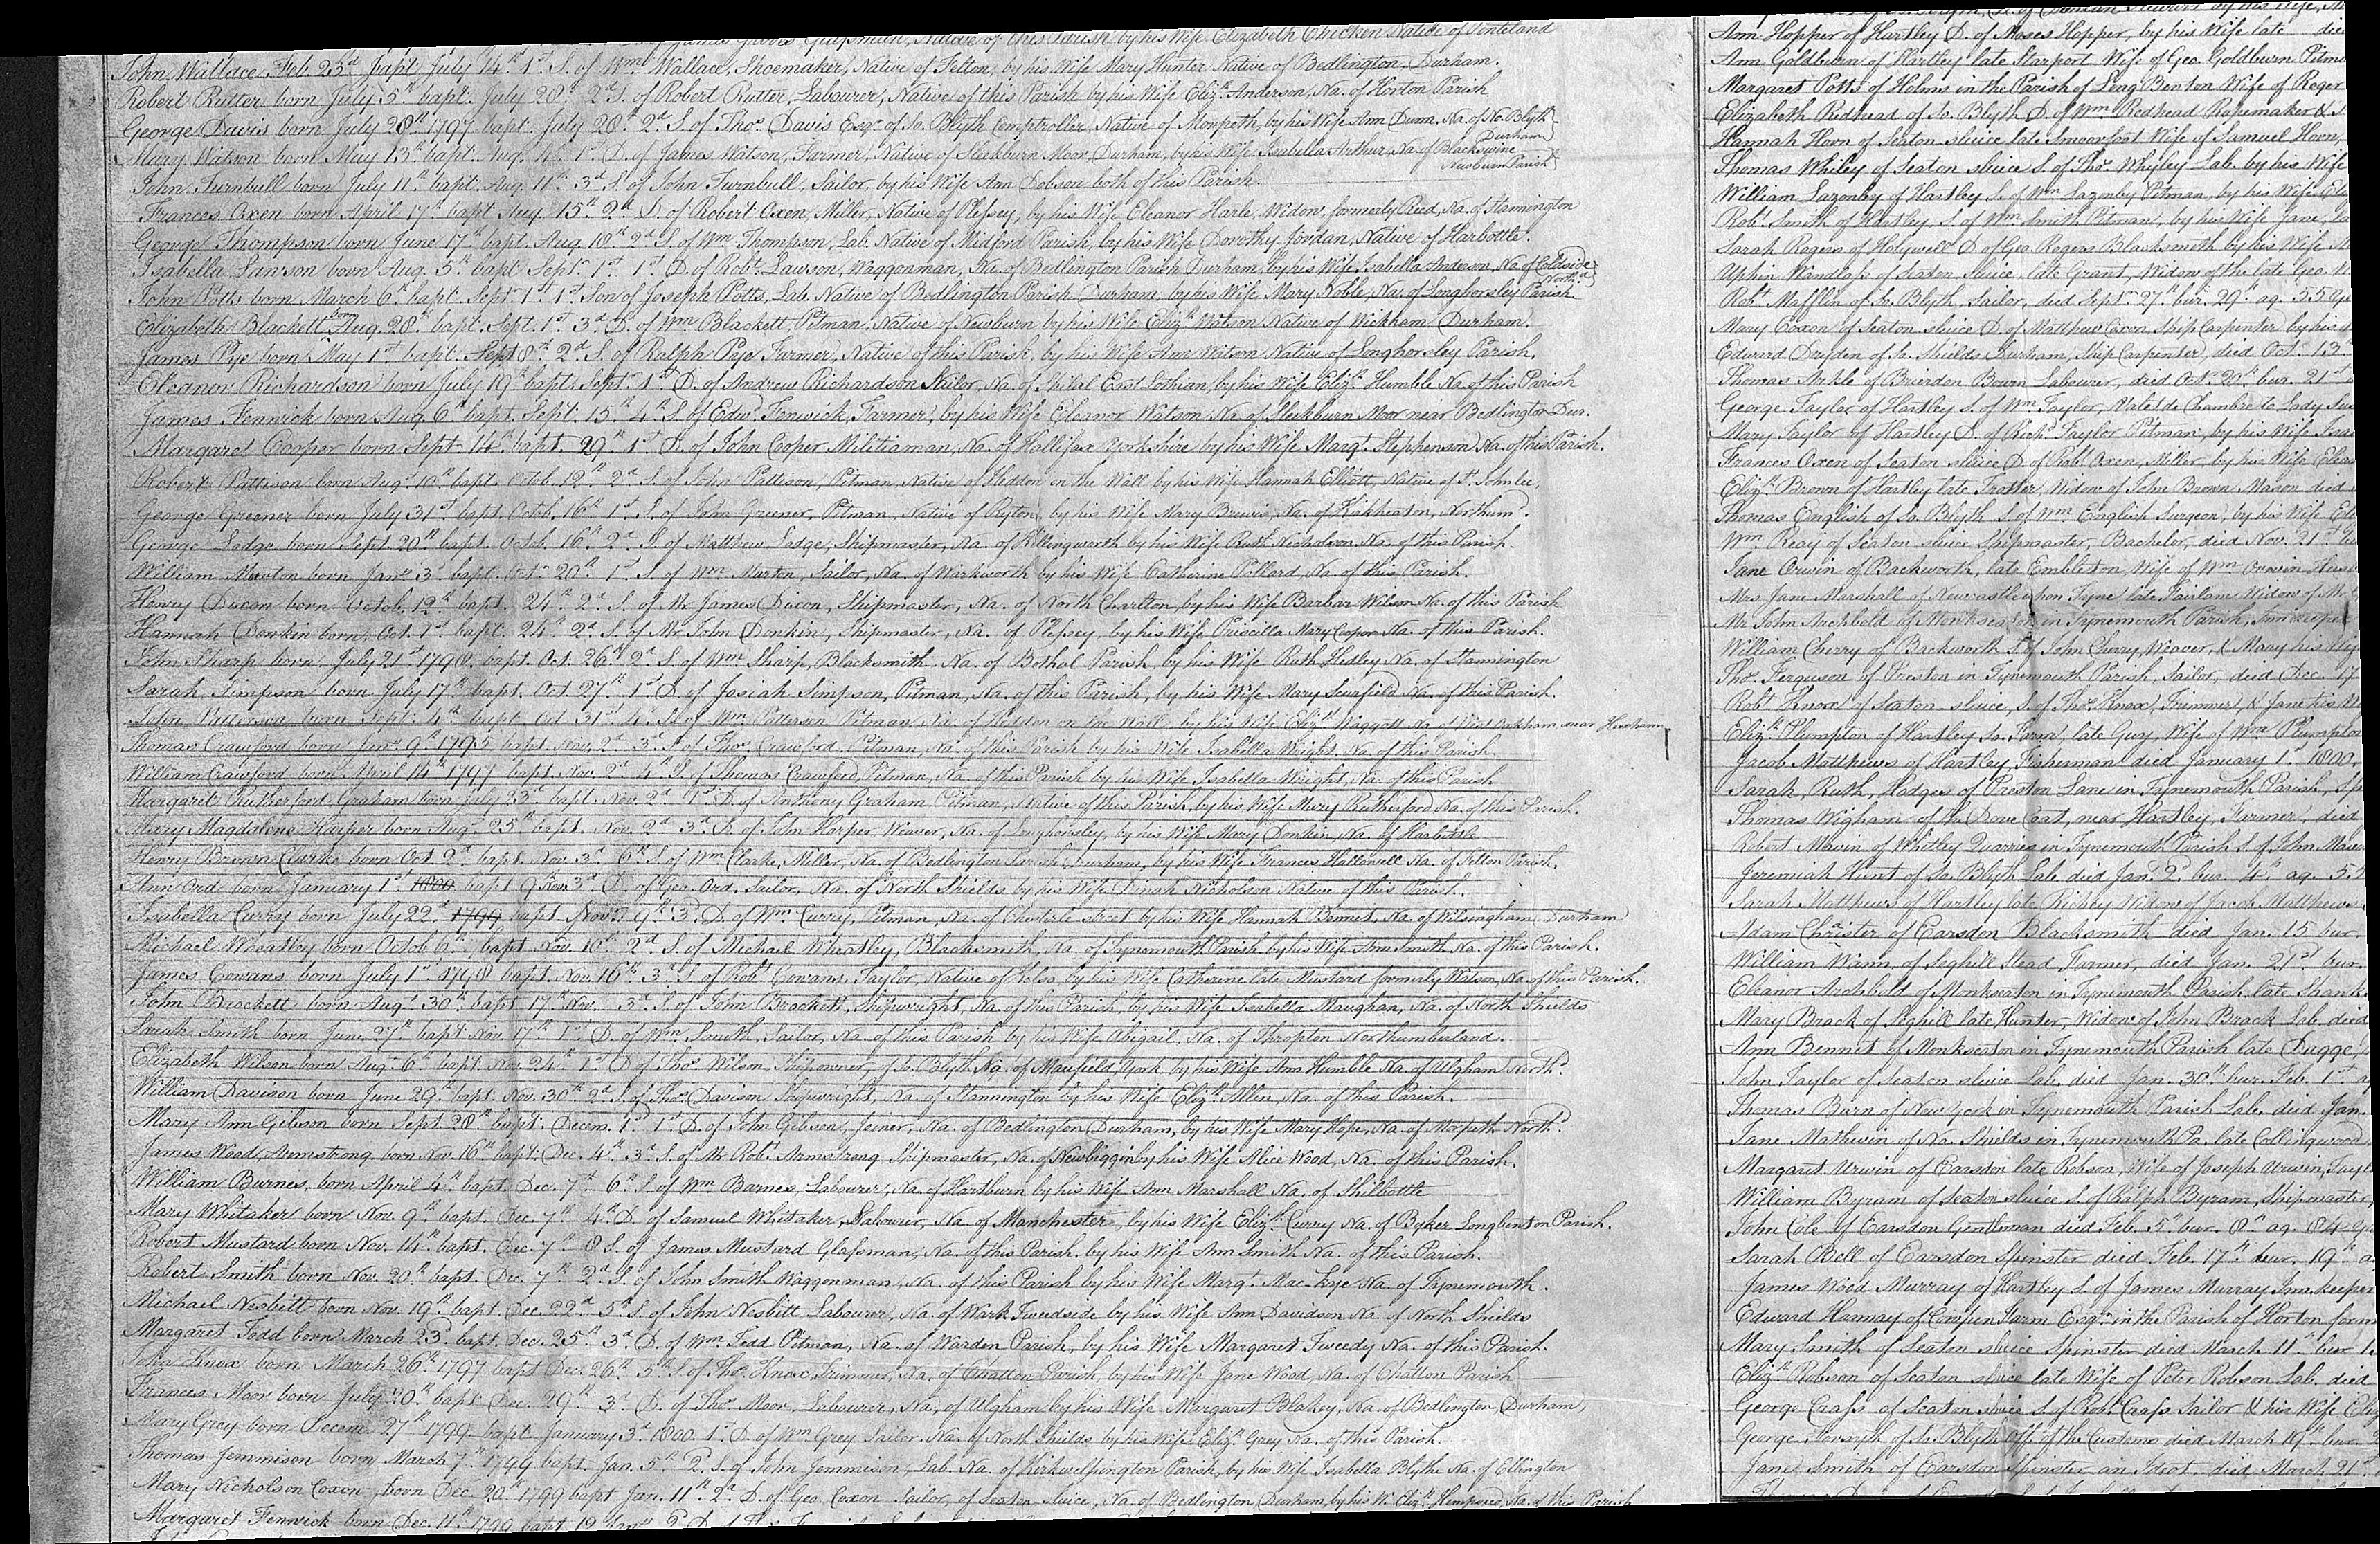 James Jarvis Glassman, Native of this Parish by his Wife Elizabeth Chicken Native of Ponteland
John Wallace Feb. 23d bapt. July 14th 1st S. of Wm Wallace, Shoemaker, Native of Felton, by his Wife Mary Hunter Native of Bedlington Durham.
Robert Rutter born July 5th bapt. July 28th 2d S. of Robert Rutter, Labourer, Native of this Parish by his Wife Elizth Anderson, Na. of Horton Parish
George Davis born July 28th 1797 bapt. July 28th 2d S. of Thos Davis Esqr of So. Blyth Comptroller, Native of Morpeth, by his Wife Ann Dunn. Na. of No. Blyth Durham
Mary Watson born May 13th bapt. Aug. 4th 1st D. of James Watson, Farmer, Native of Sleekburn Moor, Durham, by his Wife Isabella Arthur, Na. of Blackswine Newburn Parish
John Turnbull born July 11th bapt. Aug. 11th 3d S. of John Turnbull, Sailor, by his Wife Ann Dobson both of this Parish.
Frances Oxen born April 17th bapt Aug. 15th 2d D. of Robert Oxen, Miller, Native of Plessey, by his Wife Eleanor Harle, Widow, formerly Reed, Na. of Stannington
George Thompson born June 17th bapt. Aug. 18th 2d S. of Wm Thompson, Lab. Native of Midford Parish, by his Wife Dorothy Jordan, Native of Harbottle.
Isabella Lawson born Aug. 5th bapt. Sept. 1st 1st D. of Robt Lawson, Waggonman, Na. of Bedlington Parish Durham, by his Wife Isabella Anderson, Na. of Coldside North.
John Potts born March 6th bapt. Sept. 1st 1st Son of Joseph Potts, Lab. Native of Bedlington Parish Durham, by his Wife Mary Noble, Na. of Longhorsley Parish.
Elizabeth Blackett born Aug. 28th bapt. Sept. 1st 3d D. of Wm Blackett, Pitman, Native of Newburn by his Wife Elizth Watson Native of Wickham Durham.
James Pye born May 1st bapt. Sept 8th 2d S. of Ralph Pye Farmer, Native of this Parish, by his Wife Ann Watson Native of Longhorsley Parish.
Eleanor Richardson born July 19th bapt. Sept. 1st D. of Andrew Richardson Sailor, Na. of East Lothian, by his Wife Elizth Humble Na. of this Parish
James Fenwick born Aug. 6th bapt. Sept. 15th 4th S. of Edwd Fenwick, Farmer, by his Wife Eleanor Watson Na. of Sleekburn Moor near Bedlington Dur.
Margaret Cooper born Sept. 14th bapt. 29th 1st D. of John Cooper Militiaman, Na. of Hallifax Yorkshire by his Wife Margt Stephenson Na. of this Parish.
Robert Pattison born Augt 10th bapt. Octob. 12th 2d S. of John Pattison, Pitman, Native of Heddon on the Wall by his Wife Hannah Elliott, Native of St. John lee,
George Greener born July 31st bapt. Octob. 16th 1st S. of John Greener, Pitman, Native of Ryton, by his Wife Mary Brewis, Na. of Kirkheaton, Northumd.
George Lodge born Sept. 20th bapt. Octob. 16th 2d S. of Matthew Lodge, Shipmaster, Na. of Killingworth by his Wife Ruth Nicholson Na. of this Parish.
William Marton born Jany 3d bapt. Octr 20th 1st S. of Wm Marton, Sailor, Na. of Warkworth by his Wife Catherine Pollard, Na. of this Parish.
Henry Dixon born Octob. 19th bapt. 24th 2d S. of Mr James Dixon, Shipmaster, Na. of North Charlton, by his Wife Barbar Wilson Na. of this Parish
Hannah Donkin born Oct. 1st bapt. 24th 2d S. of Mr John Donkin, Shipmaster, Na. of Plessey, by his Wife Priscilla Mary Cooper Na. of this Parish.
John Sharp born July 21st 1798 bapt. Oct. 26th 2d S. of Wm Sharp, Blacksmith Na. of Bothal Parish, by his Wife Ruth Hedley Na. of Stannington
Sarah Simpson born July 17th bapt. Oct 27th 1st D. of Josiah Simpson, Pitman, Na. of this Parish, by his Wife Mary Scurfield Na. of this Parish.
John Patterson born Sept. 4th bapt. Oct 31st 4th S. of Wm Patterson Pitman, Na. of Heddon on the Wall, by his Wife Elizth Waggott Na. of West near
Thomas Crawford born Jany 9th 1795 bapt. Nov. 2d 3d S. of Thos Crawford, Pitman, Na. of this Parish by his Wife Isabella Wright, Na. of this Parish
William Crawford born April 14th 1797 bapt. Nov. 2d 4th S. of Thomas Crawford Pitman, Na. of this Parish by his Wife Isabella Wright, Na. of this Parish
Margaret Rutherford Graham born July 23d bapt. Nov. 2d 1st D. of Anthony Graham Pitman, Native of this Parish, by his Wife Mary Rutherford Na. of this Parish.
Mary Magdalene Harper born Augt 25th bapt. Nov. 2d 3d D. of John Harper Weaver, Na. of Longhorsley, by his Wife Mary Donkin Na. of Harbottle
Henry Brown Clarke born Oct. 2d bapt. Nov. 3d 6th S. of Wm Clarke, Miller, Na. of Bedlington Parish, Durham, by his Wife Frances Hallowell Na. of Felton Parish.
Ann Ord born January 1st 1800 bapt Nov. 3d D. of Geo. Ord, Sailor, Na. of North Shields by his Wife Dinah Nicholson Native of this Parish.
Isabella Curry born July 22d 1799 bapt. Novr 9th 3d D. of Wm Curry, Pitman, Na. of Chesterle street by his Wife Hannah Bennet, Na. of Wilsingham Durham
Michael Wheatley born Octob 6th bapt. Nov. 10th 2d S. of Michael Wheatley, Blacksmith, Na. of Tynemouth Parish by his Wife Ann Smith Na. of this Parish.
James Cowans born July 1st 1798 bapt. Nov. 16th 3d S. of Robt Cowans, Taylor, Native of Kelso, by his Wife Catherine late Mustard formerly Watson, Na. of this Parish.
John Brackett born Augt 30th bapt 17th Nov. 3d S. of John Brackett, Shipwright, Na. of this Parish, by his Wife Isabella Maughan, Na. of North Shields
Sarah Smith born June 27th bapt. Nov. 17th 1st D. of Wm Smith, Sailor, Na. of this Parish by his Wife Abigail, Na. of Thropton Northumberland.
Elizabeth Wilson born Aug. 6th bapt. Nov. 24th 1st D. of Thos Wilson, Shipowner, of So. Blyth Na. of York by his Wife Ann Humble Na. of Ulgham North.
William Davison born June 29th bapt. Nov. 30th 2d S. of Thos Davison Shipwright, Na. of Stannington by his Wife Elizth Allen, Na. of this Parish.
Mary Ann Gibson born Sept. 28th bapt. Decem. 1st 1st D. of John Gibson, Joiner, Na. of Bedlington Durham, by his Wife Mary Hope, Na. of Morpeth North.
James Wood Armstrong born Nov. 16th bapt. Dec. 4th 3d S. of Mr Robt Armstrong Shipmaster, Na. of Newbiggin by his Wife Alice Wood, Na. of this Parish.
William Burnes, born April 4th bapt. Dec. 7th 6th S. of Wm Barnes, Labourer, Na. of Hartburn by his Wife Ann Marshall Na. of Shilbottle
Mary Whitaker born Nov. 9th bapt. Dec. 7th 4th D. of Samuel Whitaker, Labourer, Na. of Manchester, by his Wife Elizth Curry Na. of Byker Longbenton Parish.
Robert Mustard born Nov. 14th bapt. Dec. 7th 8 S. of James Mustard Glassman, Na. of this Parish, by his Wife Ann Smith Na. of this Parish.
Robert Smith born Nov. 20th bapt. Dec. 7th 2d S. of John Smith Waggonman, Na. of this Parish by his Wife Margt Mac-Kye Na. of Tynemouth.
Michael Nesbitt born Nov. 19th bapt. Dec. 22d 5th S. of John Nesbitt Labourer, Na. of Wark Tweedside by his Wife Ann Davidson Na. of North Shields
Margaret Todd born March 23 bapt. Dec. 25th 3d D. of Wm Todd Pitman, Na. of Warden Parish, by his Wife Margaret Tweedy Na. of this Parish.
John Knox born March 26th 1797 bapt Dec. 26th 5th S. of Thos Knox Trimmer, Na. of Chatton Parish, by his Wife Jane Wood, Na. of Chatton Parish
Frances Moor born July bapt. Dec. 29th 3d D. of Thos Moor, Labourer, Na. of Ulgham by his Wife Margaret Blakey, Na. of Bedlington, Durham,
Mary Grey born Decem. 27th 1799 bapt. January 3d 1800. 1st D. of Wm Grey Sailor. Na. of North Shields by his Wife Elizth Grey Na. of this Parish.
Thomas Jemmison born March 7th 1799 bapt. Jan. 5th 2 S. of John Jemmison, Lab. Na. of Kirkwelpington Parish, by his Wife Isabella Blythe Na. of Ellington
Mary Nicholson Coxon, born Dec. 20th 1799 bapt Jan. 11th 2d D. of Geo. Coxon Sailor, of Seaton sluice, Na. of Bedlington Durham, by his W. Elizth Na. of this Parish
Margaret Fenwick born Dec. 11th 1799 bapt. 12 Jany 2 D.
Ann Hopper of Hartley D. of Moses Hopper, by his Wife late died
Ann Goldburn of Hartley late Starport Wife of Geo. Goldburn Pitm
Margaret Potts of Holms in the Parish of Long Benton Wife of Roger
Elizabeth Redhead of So. Blyth D. of Wm Redhead Ropemaker &
Hannah Horn of Seaton sluice late Smoorfoot Wife of Samuel Horn,
Thomas Whiley of Seaton sluice S. of Thos Whyley Lab. by his Wife
William Lazonby of Hartley S. of Wm Lazonby Pitman, by his Wife Ele
Robt Smith of Hartley S. of Wm Smith Pitman, by his Wife Jane,
Sarah Rogers of Holywell D. of Geo. Rogers Blacksmith by his Wife M
Uphin Wandass of Seaton Sluice, late Grant, Widow of the late Geo.
Robt Mafflin of So. Blyth, Sailor, died Sept 27th bur. 29th ag. 55
Mary Coxon of Seaton sluice D. of Matthew Coxon Ship Carpenter by his
Edward Dryden of So. Shields Durham, Ship Carpenter, died Oct. 13
Thomas Arkle of Brierdon Bourn Labourer, died Octr 20th bur. 21st
George Taylor of Hartley S. of Wm Taylor, Valet de Chambre to Lady
Mary Taylor of Hartley D. of Richd Taylor Pitman, by his Wife Isa
Frances Oxen of Seaton sluice D. of Robt Oxen, Miller, by his Wife Elea
Elizth Brown of Hartley late Trotter, Widow of John Brown Mason died
Thomas English of So. Blyth S. of Wm English Surgeon, by his Wife
Wm Reay of Seaton sluice Shipmaster, Bachelor, died Nov. 21st
Jane Orwin of Backworth, late Embleton, Wife of Wm Orwin
Mrs Jane Marshall of Newcastle upon Tyne late Fairlam Widow of Mr
Mr John Archbold of Monkseaton in Tynemouth Parish, Innkeeper
William Cherry of Backworth S. of John Cherry, Weaver, & Mary his Wife
Thos Ferguson of Preston in Tynemouth Parish, Sailor, died Dec. 17
Robt Knox of Seaton sluice, S. of Thos Knox, Trimmer, & Jane his
Elizth Plumpton of Hartley So. Farm, late Guy, Wife of Wm Plumpton
Jacob Matthews of Hartley, Fisherman died January 1st 1800.
Sarah, Ruth, Hodges of Preston Lane in Tynemouth Parish,
Thomas Wigham of the Dove Coat, near Hartley, Farmer, died
Robert Mavin of Whitley Quarries in Tynemouth Parish S. of John Mav
Jeremiah Hunt of So. Blyth Lab. died Jan. 2. bur. 4th ag. 5
Sarah Matthews of Hartley late Richey Widow of Jacob Matthews
Adam Christer of Earsdon Blacksmith died Jan. 15 bur.
William Wann, of Seghill Stead, Farmer, died Jan. 21st bur.
Eleanor Archbold of Monkseaton in Tynemouth Parish, late Shank
Mary Brack of Seghill late Hunter, Widow of John Brack Lab. died
Ann Bennet of Monkseaton in Tynemouth Parish late Dagge,
John Taylor of Seaton sluice Lab. died Jan. 30th bur. Feb. 1st a
Thomas Burn of New York in Tynemouth Parish Lab. died Jan.
Jane Mathwin of No. Shields in Tynemouth Pa. late Collingwood
Margaret Urwin of Earsdon late Robson, Wife of Joseph Urwin, Tayl
William Byram of Seaton sluice S. of Ralph Byram, Shipmaster,
John Cole of Earsdon Gentleman died Feb. 5th bur. 8th ag. 84
Sarah Bell of Earsdon Spinster died Feb. 17th bur. 19th a
James Wood Murray of Hartley S. of James Murray Innkeeper
Edward Hannay of Cowpen Farm Esqr in the Parish of Horton form
Mary Smith of Seaton sluice Spinster died March 11th bur 1
Elizth Robson of Seaton sluice late Wife of Peter Robson Lab. died
George Crass of Seaton sluice S. of Robt Crass Sailor & his Wife
George Forsyth of So. Blyth Off. of the Customs died March 19th bur.
Jane Smith of Earsdon Spinster an Ideot, died March 21st